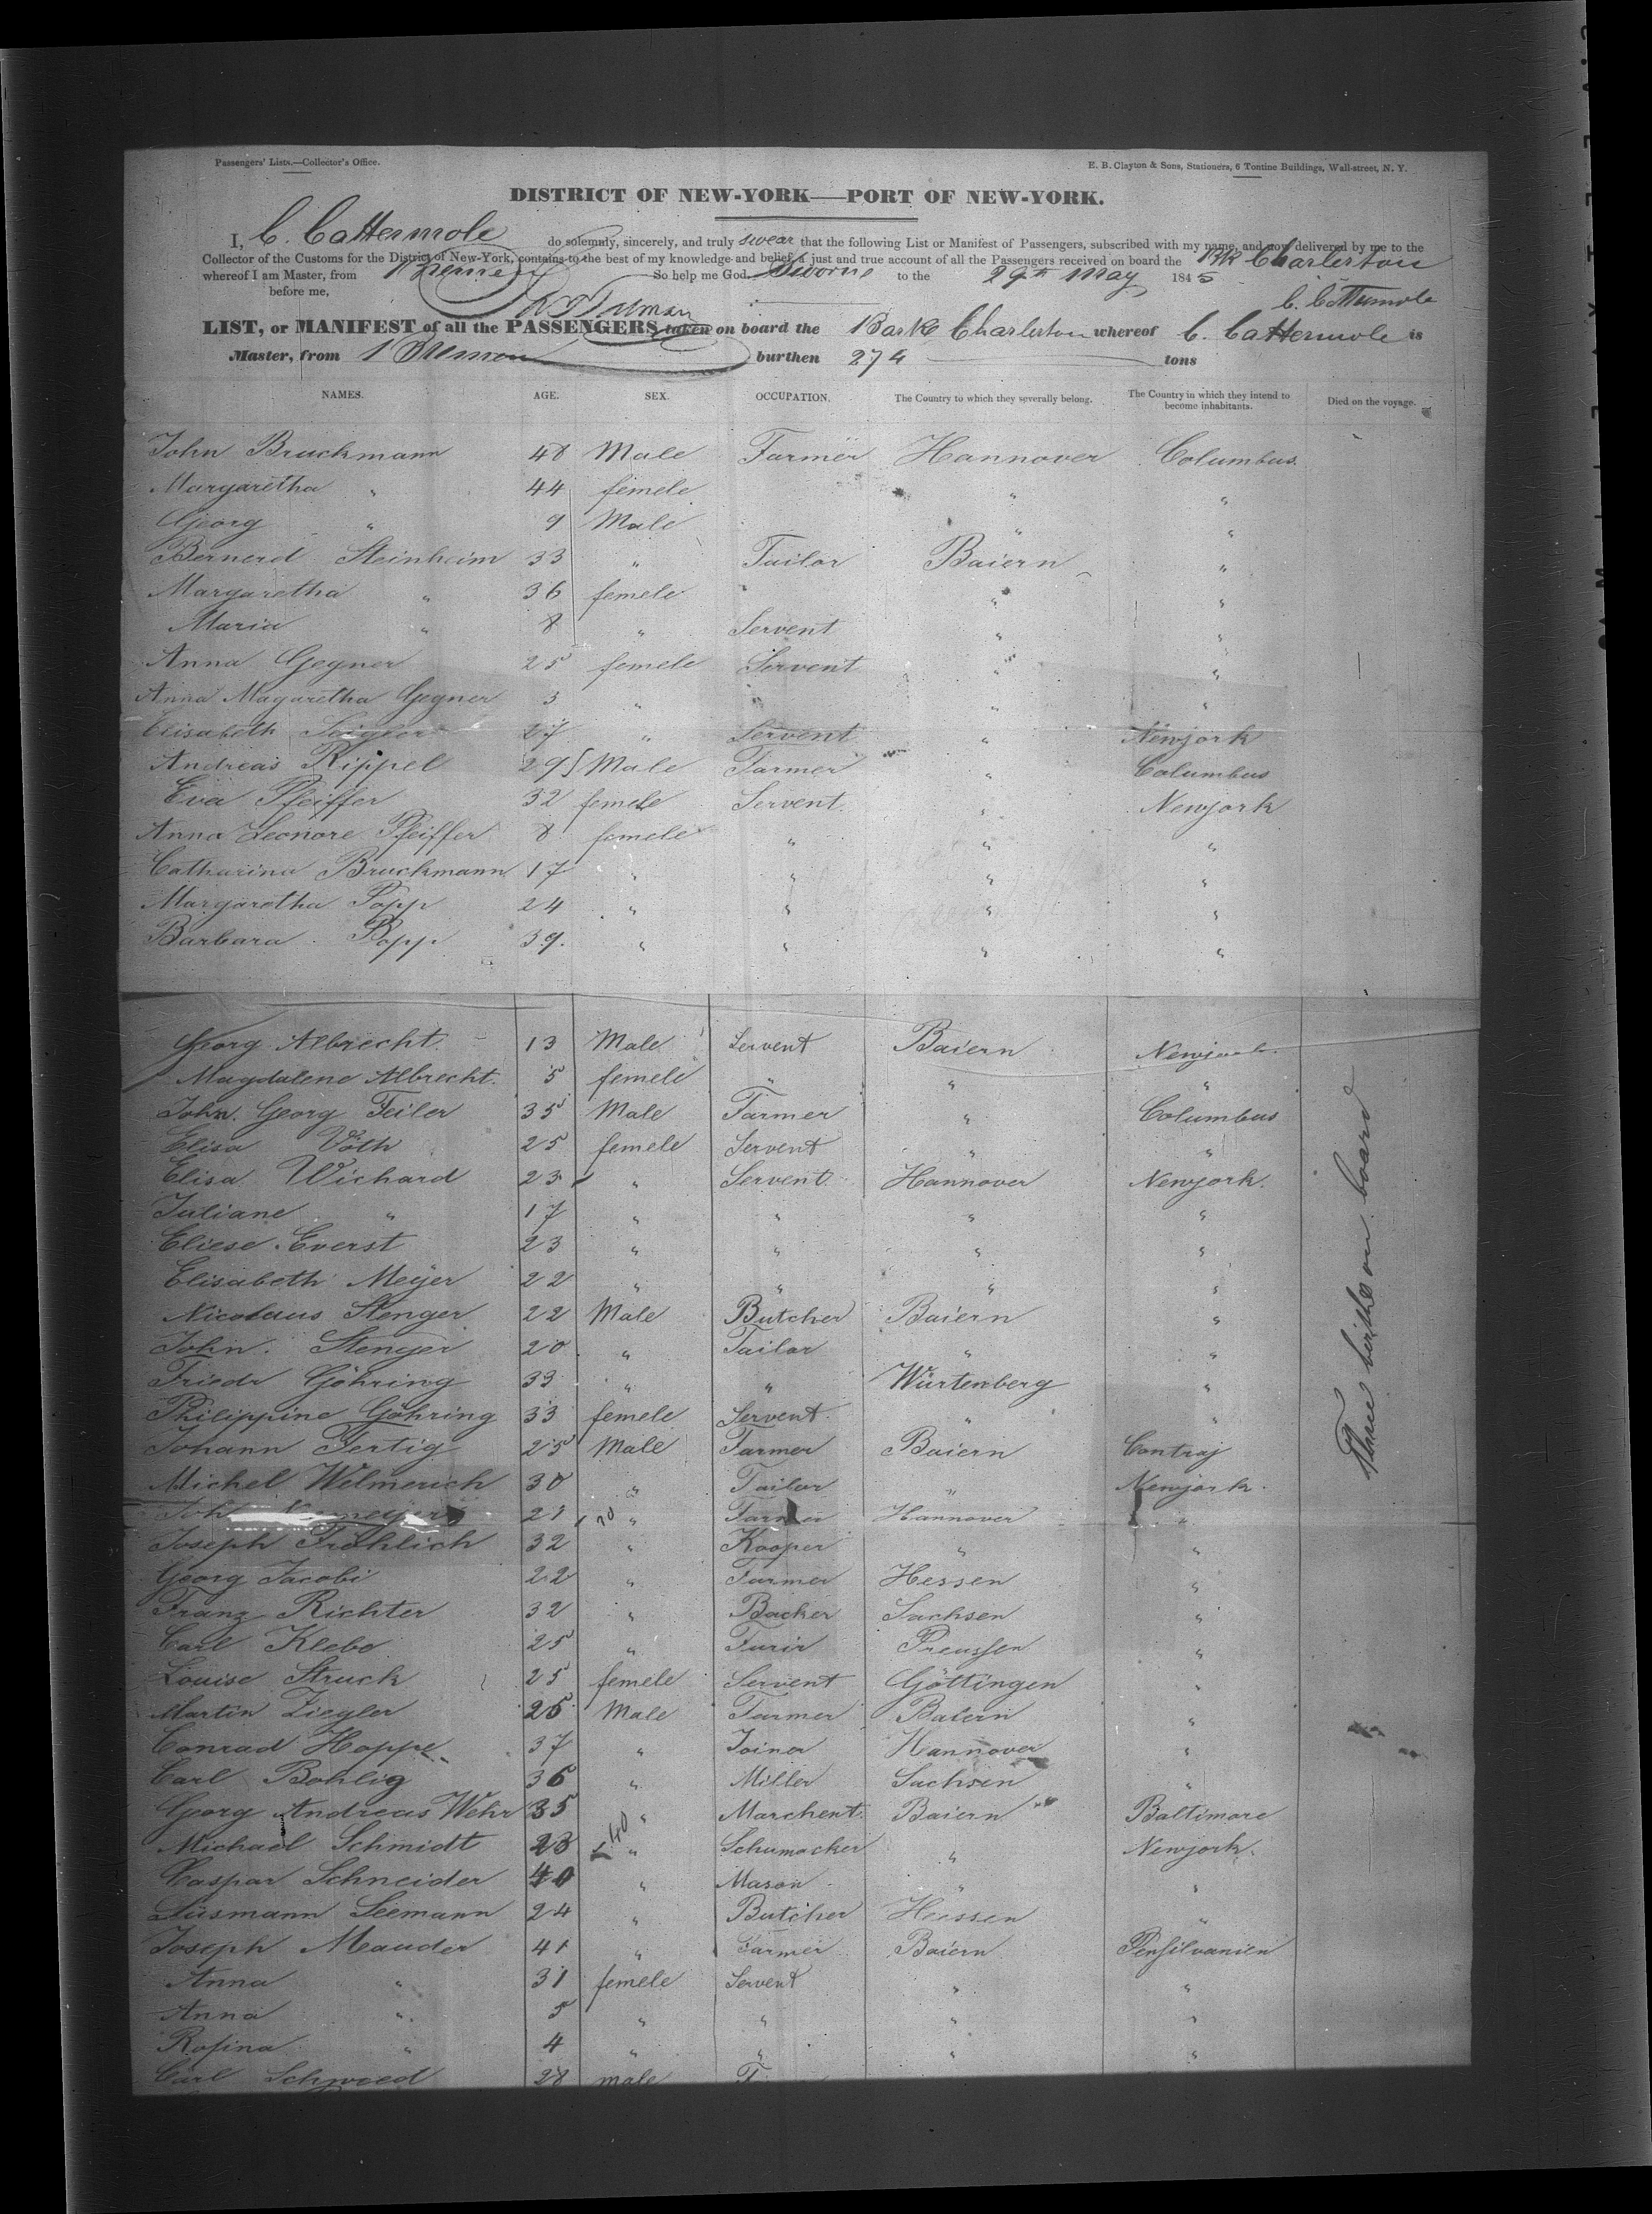 Passengers' Lists.—Collector's Office.
E. B. Clayton & Sons, Stationers, 6 Tontine Buildings, Wall-street, N. Y.
DISTRICT OF NEW-YORK—PORT OF NEW-YORK.
I, C. Cattermole do solemnly, sincerely, and truly swear that the following List or Manifest of Passengers, subscribed with my name, and now delivered by me to the
Collector of the Customs for the District of New-York, contains to the best of my knowledge and belief, a just and true account of all the Passengers received on board the Bk Charleston
whereof I am Master, from Bremen So help me God. Sworn to the 29th May 1845
before me,
C. Cattermole
LIST, or MANIFEST of all the PASSENGERS taken on board the Bark Charleston whereof C. Cattermole is
Master, from Bremen burthen 274 tons
NAMES. AGE. SEX. OCCUPATION. The Country to which they severally belong. The Country in which they intend to become inhabitants. Died on the voyage.
John Bruckmann 48 Male Farmer Hannover Columbus
Margaretha " 44 femele " "
Georg " 9 Male " "
Bernerd Steinheim 33 " Tailor Baiern "
Margaretha " 36 femele " " "
Maria " 8 " Servent " "
Anna Gegner 25 femele Servent " "
Anna Magaretha Gegner 3 " " " "
Elisabeth 27 " Servent " Newjork
Andreas Rippel 29 Male Farmer " Columbus
Eva Pfeiffer 32 femele Servent " Newjork
Anna Leonore Pfeiffer 8 femele " " "
Catharina Bruckmann 17 " " " "
Margaretha Popp 24 " " " "
Barbara Popp 39. " " " "
Georg Albrecht 13 Male Servent Baiern Newjork
Magdalene Albrecht. 5 femele " " "
John. Georg Feiler 35 Male Farmer " Columbus
Elisa Vöth 25 femele Servent " "
Elisa Wichard 23 " Servent Hannover Newjork.
Juliane " 17 " " " "
Eliese Everst 23 " " " "
Elisabeth Meyer 22 " " " "
Nicolaus Stenger 22 Male Butcher Baiern "
John. Stenger 20 " Tailor " "
Friedr Göhring 33 " " Würtenberg "
Philippine Göhring 33 femele Servent " "
Johann Fertig 25 Male Farmer Baiern Contraj
Michel Welmerich 30 " Tailor " Newjork.
Joh 21 " Farmer Hannover "
Joseph Fröhlich 32 " Kooper " "
Georg Jacobi 22 " Farmer Hessen "
Franz Richter 32 " Backer Sachsen "
Carl Klebe 25 " Preussen "
Louise Struck 25 femele Servent Göttingen "
Martin Ziegler 25 Male Farmer Baiern "
Conrad Hoppe 37 " Joiner Hannover "
Carl Bohlig 36 " Miller Sachsen "
Georg Andreas Wehr 35 " Marchent Baiern Baltimore
Michael Schmidt 23 " Schumacker " Newjork.
Caspar Schneider 40 " Mason " "
Süsmann Seemann 24 " Butcher Hessen "
Joseph Mauder 41 " Farmer Baiern Pensilvanien
Anna " 31 femele Servent " "
Anna " 5 " " " "
Rosina " 4 " " " "
Carl Schwoed 28 male F
Three births on board